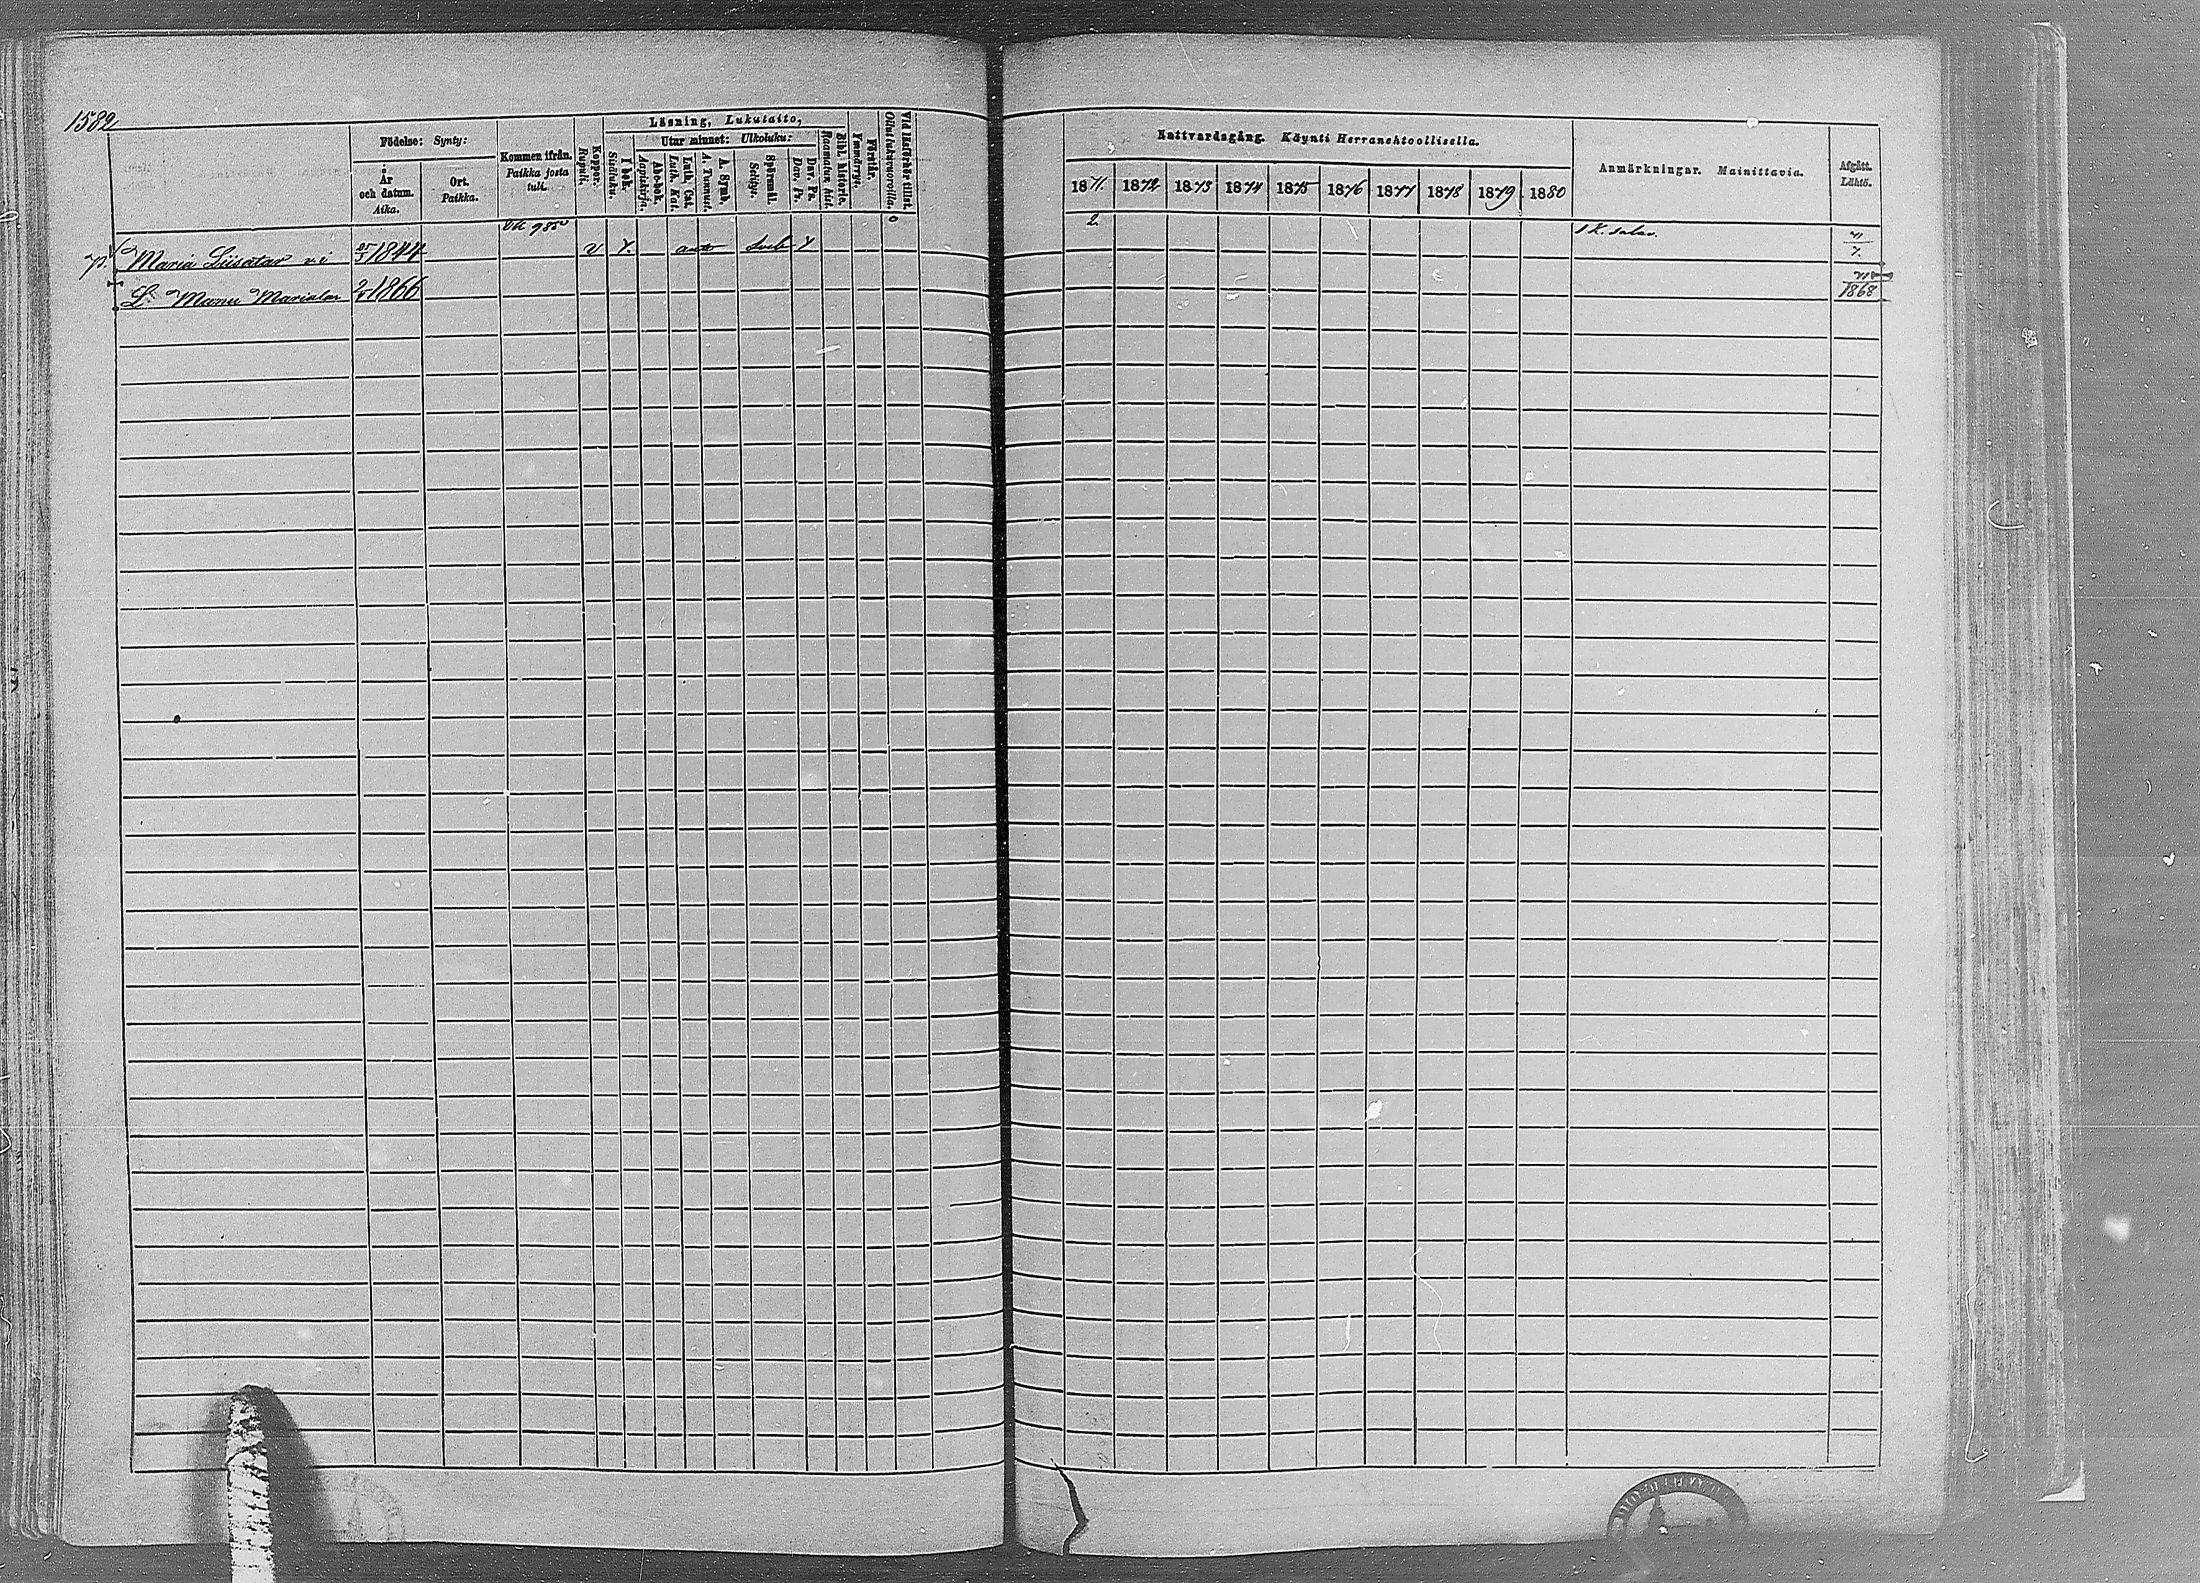 1582
Läsning, Lukutaito,
Födelse: Synty:
Utur minnet: Ulkoluku:
År och datum. Aika.
Ort. Paikka.
Kommen ifrån. Paikka josta tuli.
Koppor. Rupuli.
I bok. Sisäluku.
Abc-bok. Aapiskirja.
Luth. Cat. Luth. Kat.
A. Symb. A. Tunnust.
Spörsmål. Selitys.
Dav. Ps. Dav. Ps.
Bibl. historie. Raamatun hist.
Förstår. Ymmärrys.
Vid läsförhör tillst. Ollut lukuvuoroilla.
Nattvardsgång. Käynti Herranehtoollisella.
1871. 1872 1873 1874 1875 1876 1877 1878 1879 1880
Anmärkningar. Mainittavia.
Afgått. Lähtö.
985 2
Maria Liisatar 1844
Manu Mariatar 1866 1868